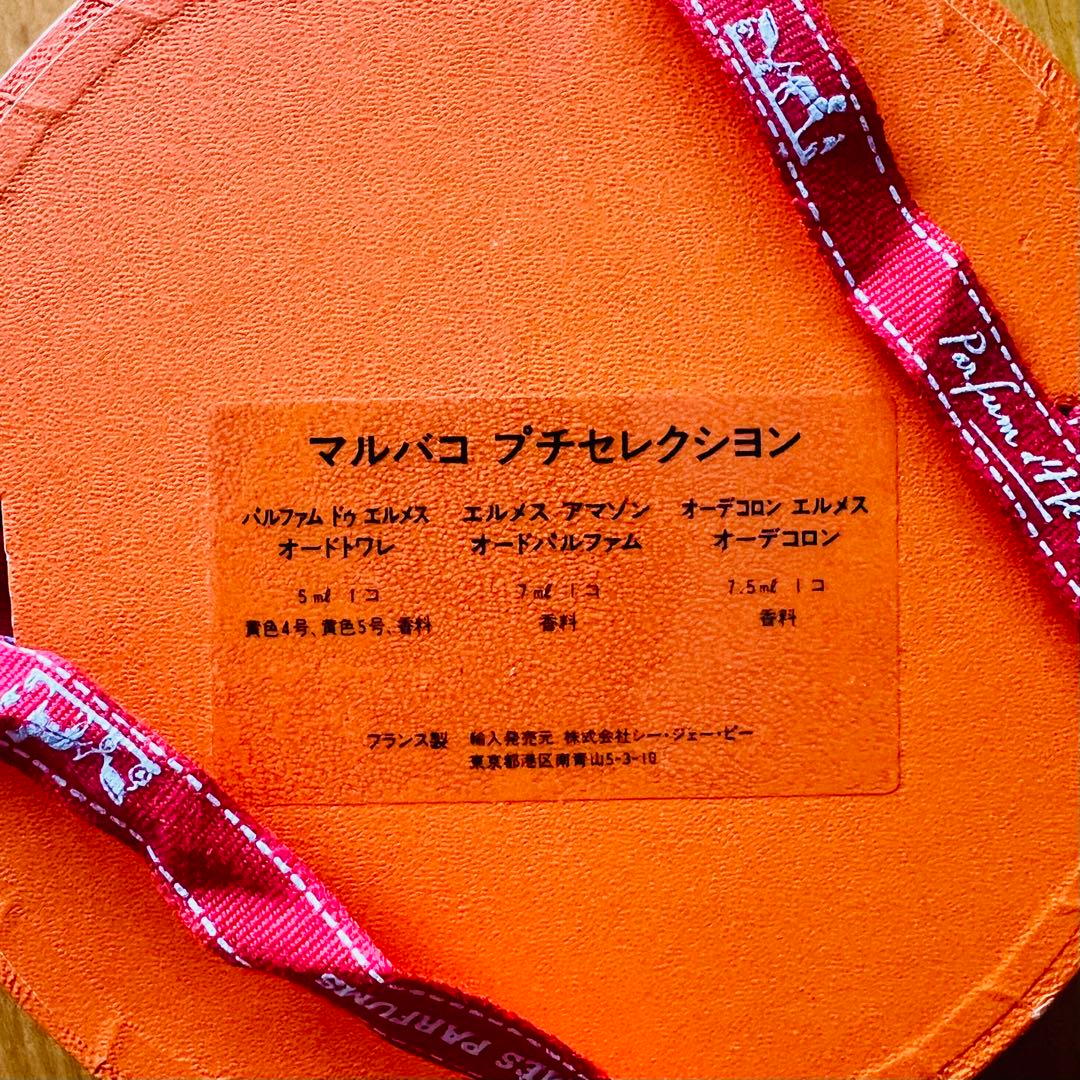 Parfum d'He
マルバコ プチセレクション
パルファム ドゥ エルメス
オードトワレ
5ml 1コ
黄色4号、黄色5号、香料
エルメス アマゾン
オードパルファム
7ml 1コ
香料
オーデコロン エルメス
オーデコロン
7.5ml 1コ
香料
フランス製 輸入発売元 株式会社シー・ジェー・ピー
東京都港区南青山5-3-10
MÈS PARFUMS